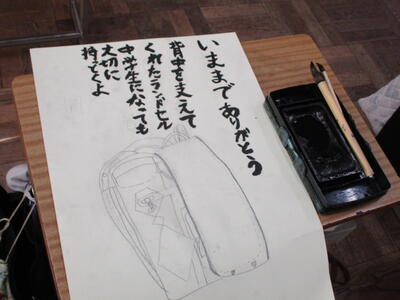 いままでありがとう
背中を支えて
くれたランドセル
中学生になっても
大切に
持っとくよ